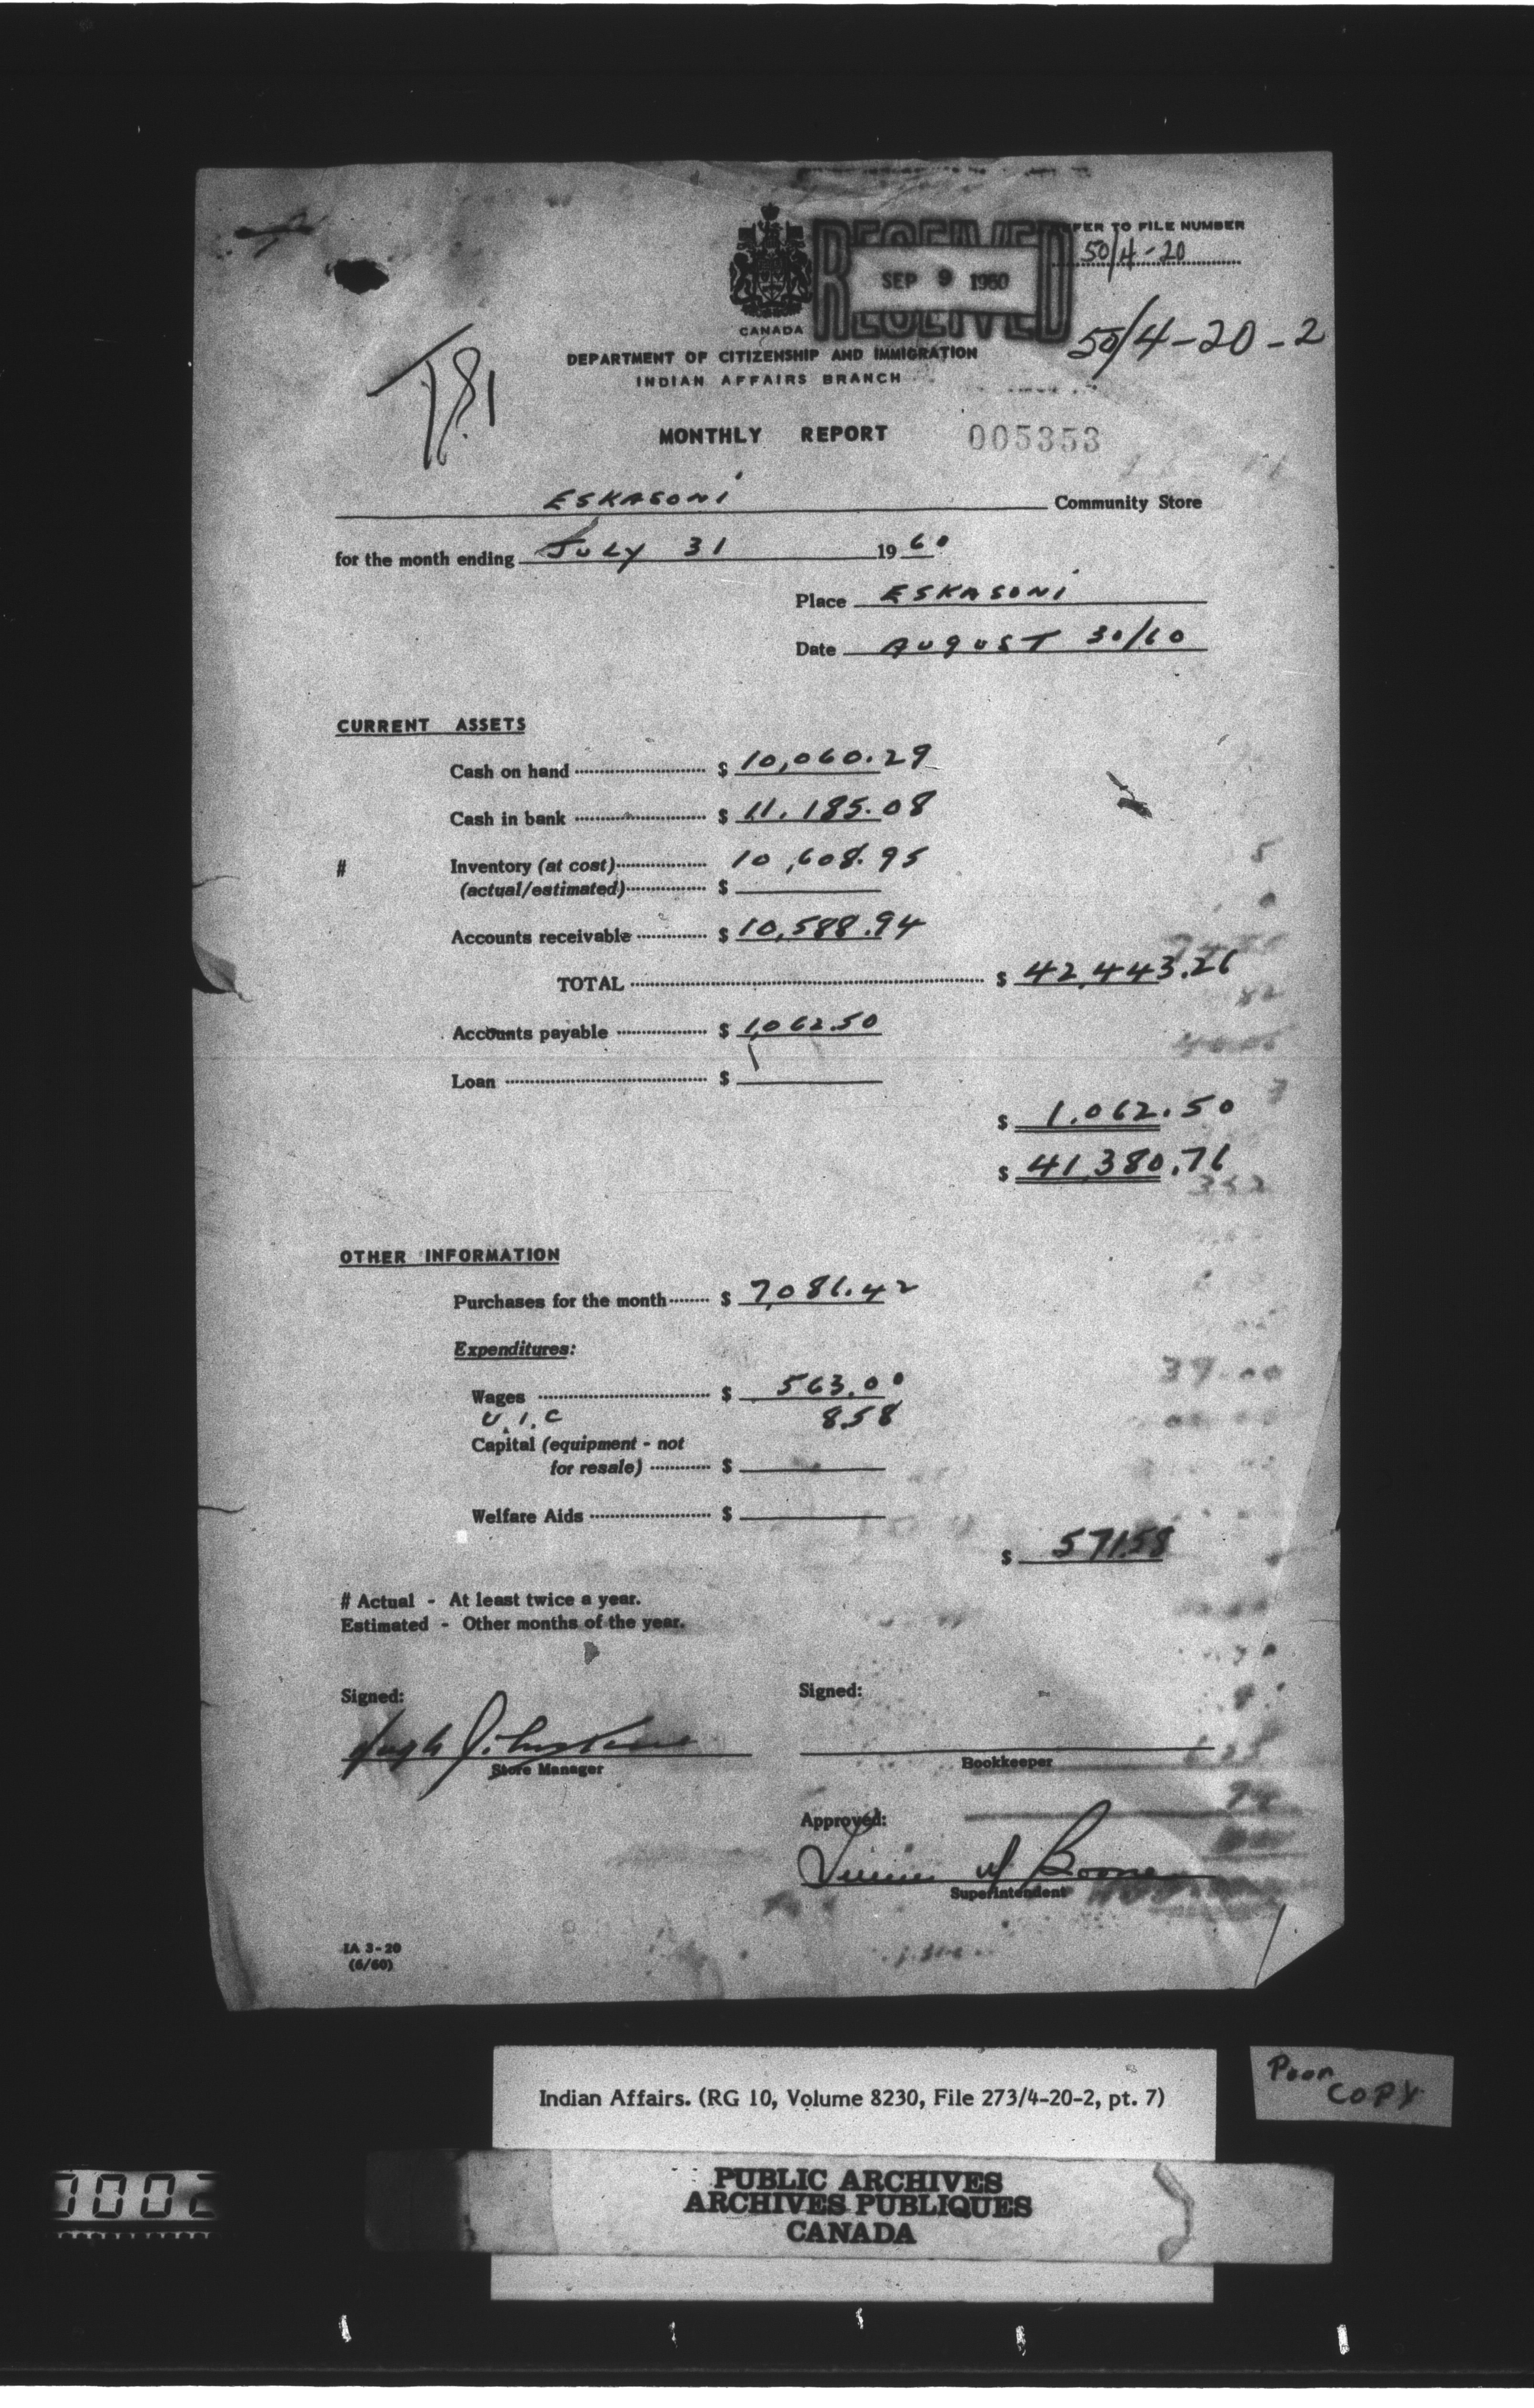 REFER TO FILE NUMBER
50/4-20
RECEIVED
SEP 9 1960
RECEIVED
CANADA
50/4-20-2
DEPARTMENT OF CITIZENSHIP AND IMMIGRATION
INDIAN AFFAIRS BRANCH
MONTHLY REPORT 005353
ESKASONI Community Store
for the month ending JULY 31 1960
Place ESKASONI
Date AUGUST 30/60
CURRENT ASSETS
Cash on hand $ 10,060.29
Cash in bank $ 11.185.08
# Inventory (at cost) 10,608.95
(actual/estimated) $
Accounts receivable $ 10,588.94
TOTAL $ 42,443.26
Accounts payable $ 1,062.50
Loan $
$ 1.062.50
$ 41,380.76
OTHER INFORMATION
Purchases for the month $ 7,081.42
Expenditures:
Wages $ 563.00
U.I.C 8.58
Capital (equipment - not
for resale) $
Welfare Aids $
$ 571.58
# Actual - At least twice a year.
Estimated - Other months of the year.
Signed:
Signed:
Hugh Johnstone
Store Manager
Bookkeeper
Approved:
Boone
Superintendent
IA 3-20
(6/60)
Indian Affairs. (RG 10, Volume 8230, File 273/4-20-2, pt. 7)
Poor
COPY
PUBLIC ARCHIVES
ARCHIVES PUBLIQUES
CANADA